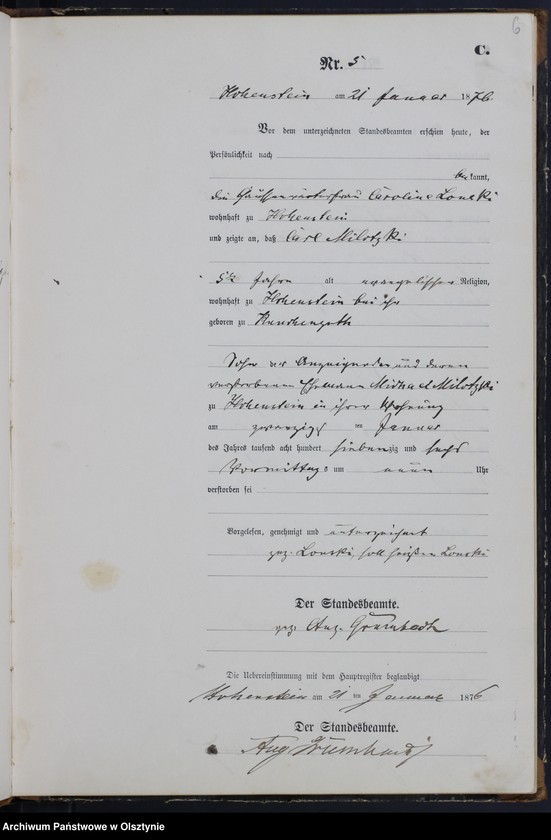 6
C.
Nr. 5
Hohenstein am 21 Januar 1876.
Vor dem unterzeichneten Standesbeamten erschien heute, der
Persönlichkeit nach
bekannt,
die Caroline Lonski
wohnhaft zu Hohenstein
und zeigte an, daß Carl Milotzki
5½ Jahre alt evangelischer Religion,
wohnhaft zu Hohenstein bei ihr
geboren zu
Sohn der Anzeigenden und deren
verstorbenen Ehemann Michael Milotzki
zu Hohenstein in ihrer Wohnung
am zwanzigsten Januar
des Jahres tausend acht hundert siebenzig und sechs
Vormittags um neun Uhr
verstorben sei
Vorgelesen, genehmigt und unterzeichnet
gez. Lonski, soll heißen Lonski
Der Standesbeamte.
gez. Aug. Grumbach
Die Uebereinstimmung mit dem Hauptregister beglaubigt
Hohenstein am 21 ten Januar 1876
Der Standesbeamte.
Aug Grumbach
Archiwum Państwowe w Olsztynie